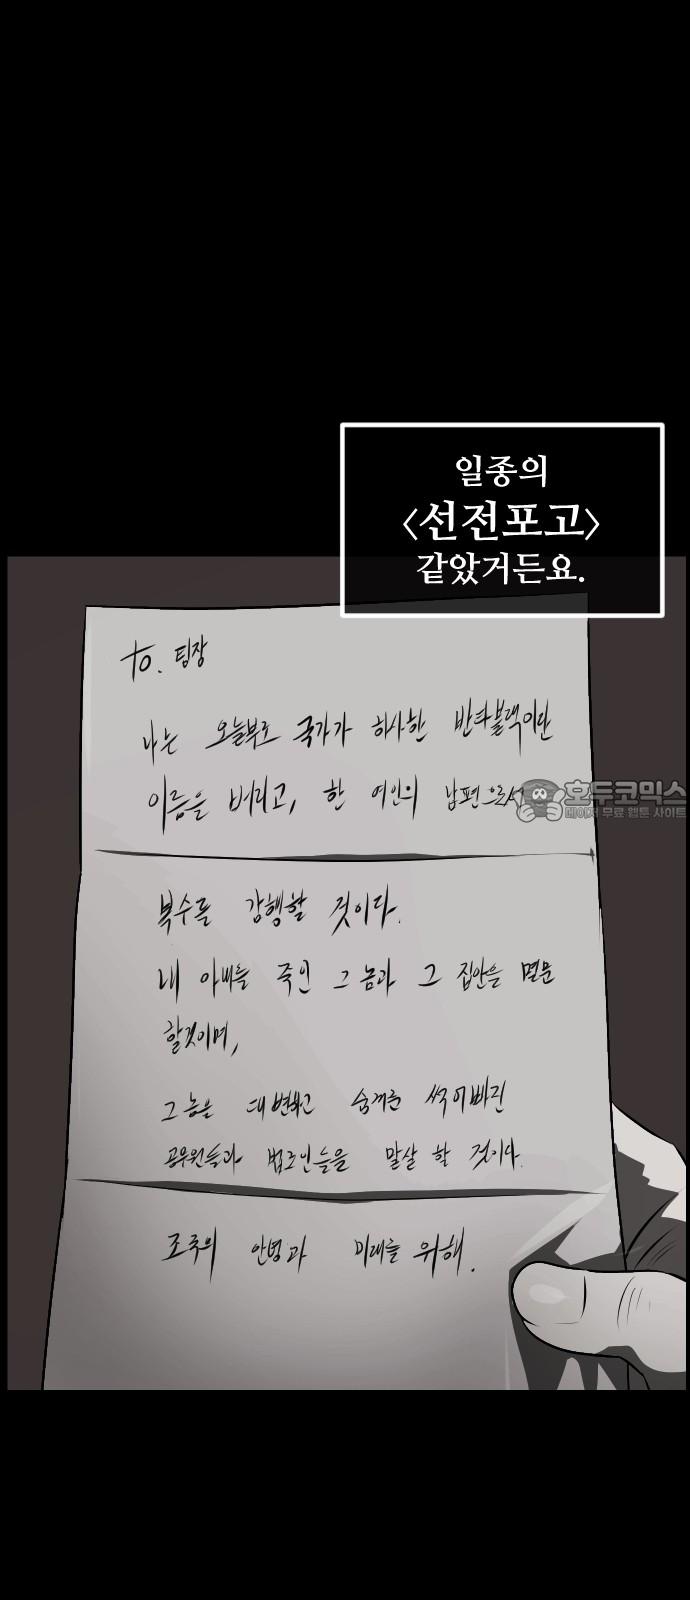 일종의
<선전포고>
같았거든요.
to. 팀장
나는 오늘부로 국가가 하사한 반타블랙이란
이름을 버리고, 한 여인의 남편으로서
호두코믹스
데이저 무료 웹툰 사이트
복수를 감행할 것이다.
내 아내를 죽인 그 놈과 그 집안을 멸문
할것이며,
그놈을 대변하고 숨겨준 썩어빠진
공무원들과 법조인들을 말살 할 것이다.
조국의 안녕과 미래를 위해.